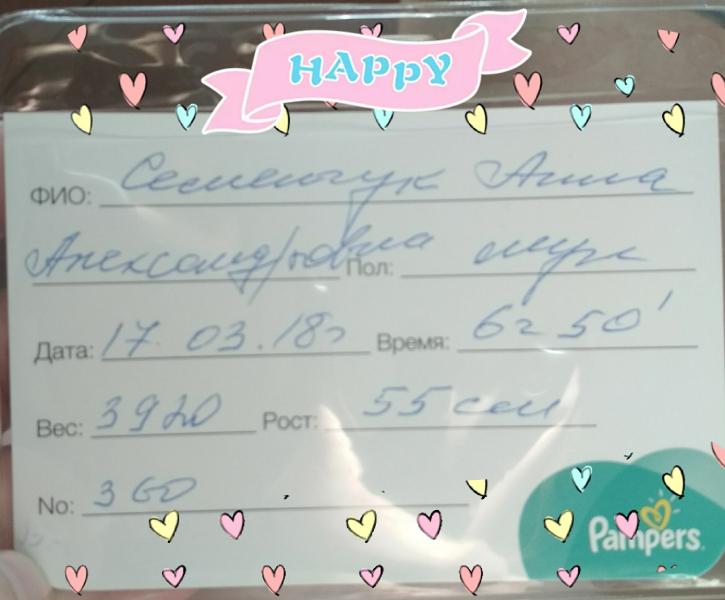 HAPPY
ФИО: Семенчук Анна
Александровна Пол: муж
Дата: 17.03.18г Время: 6г 50'
Вес: 3920 Рост: 55 см
No: 360
Pampers